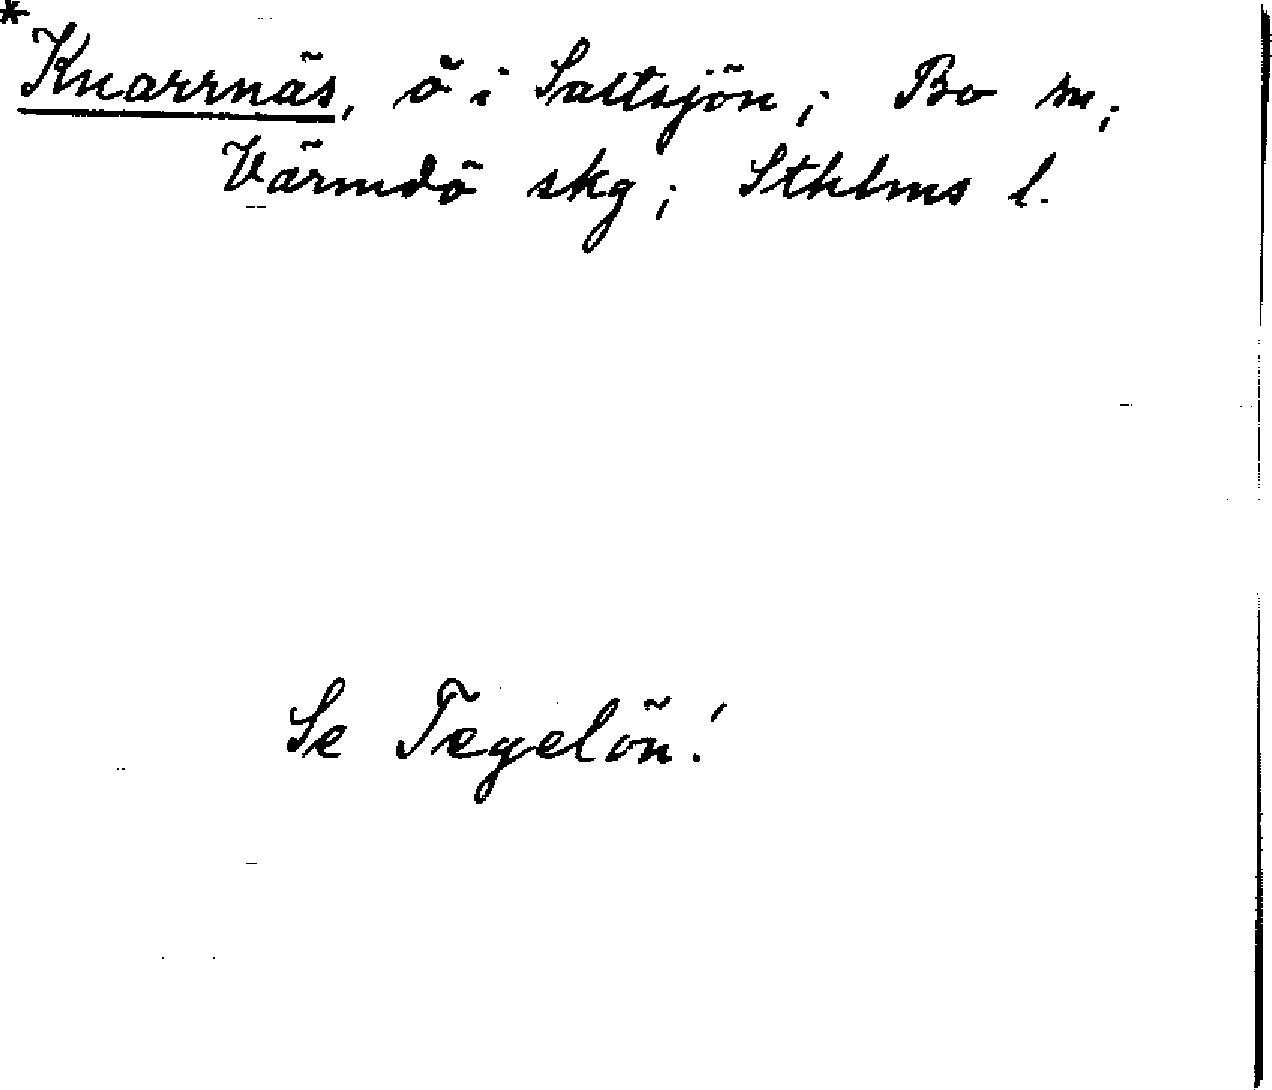 *Knarrnäs, ö i Saltsjön; Bo sn;
Värmdö skg; Sthlms l.
Se Tegelön!